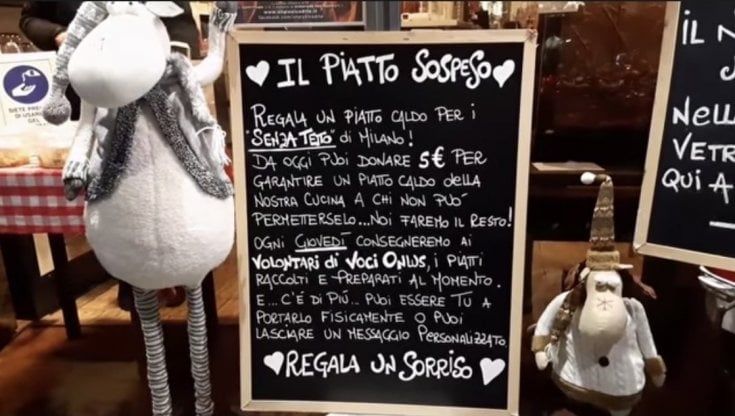 IL PIATTO SOSPESO
REGALA UN PIATTO CALDO PER I
"SENZA TETTO" di MILANO!
DA OGGI PUOI DONARE 5€ PER
GARANTIRE UN PIATTO CALDO della
NOSTRA CUCINA A CHI NON PUO'
PERMETTERSELO...NOI FAREMO IL RESTO!
OGNI GIOVEDÌ CONSEGNEREMO AI
VOLONTARI di VOCI ONLUS, i PIATTI
RACCOLTI E PREPARATI AL MOMENTO.
E... C'È DI PIÙ... PUOI ESSERE TU A
PORTARLO FISICAMENTE O PUOI
LASCIARE UN MESSAGGIO PERSONALIZZATO.
REGALA UN SORRISO
SIETE PREGATI
DI USARE
GEL
IL
NELL
VETR
QUI A